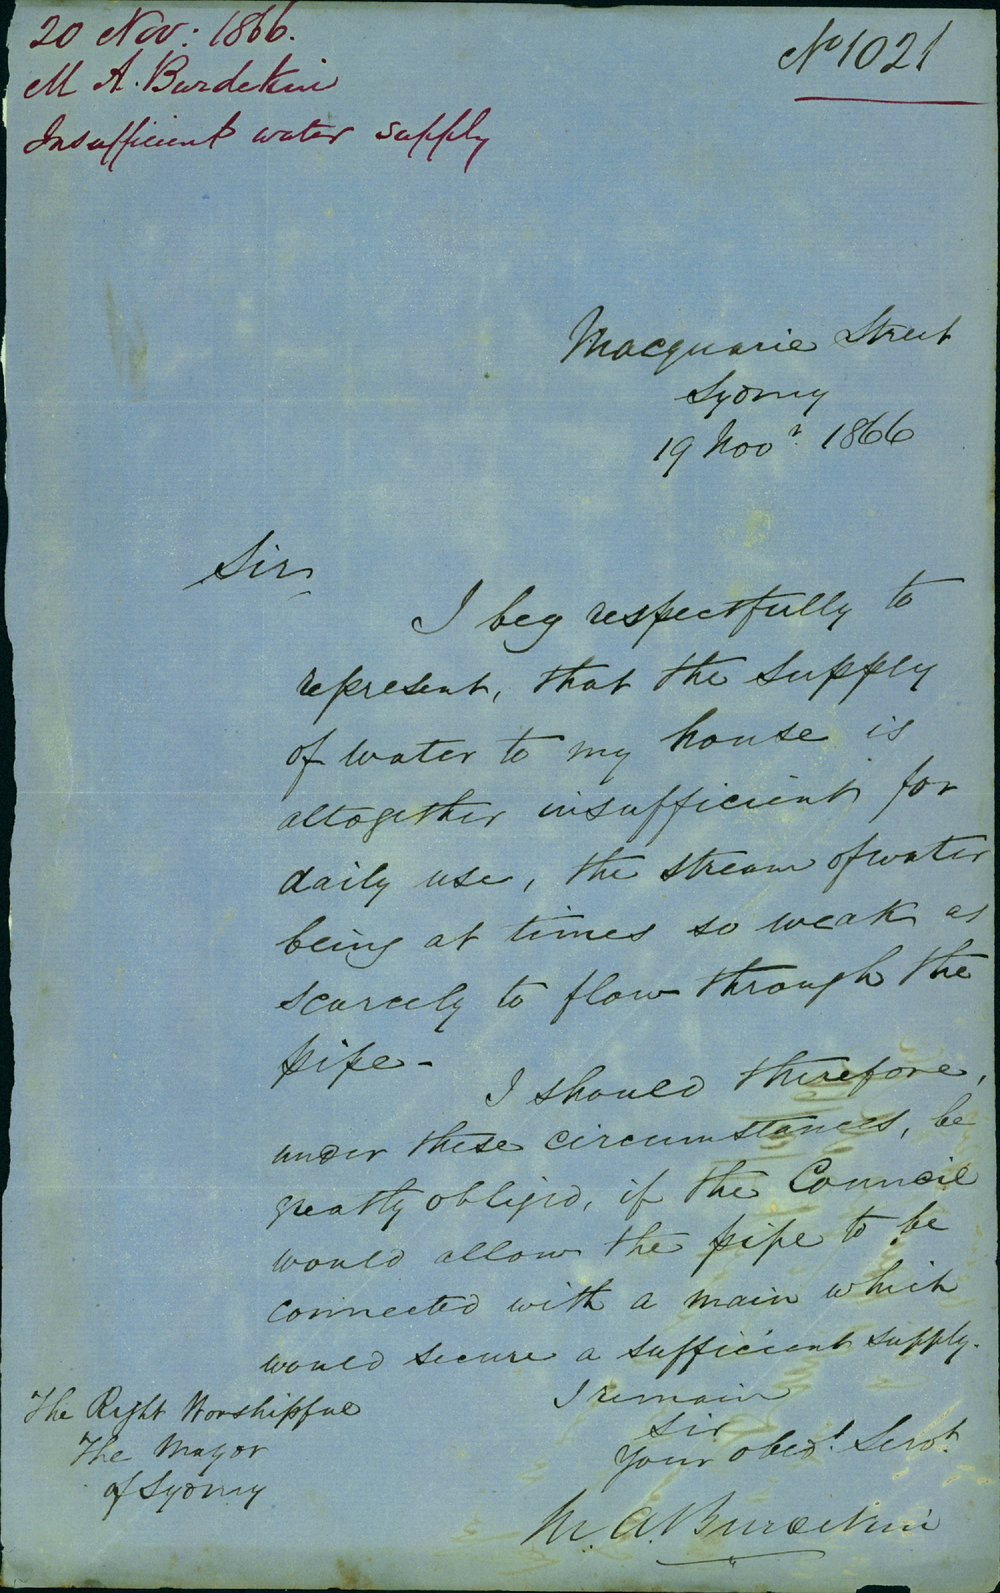 20 Nov: 1866.
M A. Burdekin
Insufficient water supply
No 1021
Macquarie Street
Sydney
19 Novr. 1866
Sir,
I beg respectfully to
represent, that the supply
of water to my house is
altogether insufficient for
daily use, the stream of water
being at times so weak as
scarcely to flow through the
pipe-
I should therefore,
under these circumstances, be
greatly obliged, if the Council
would allow the pipe to be
connected with a main which
would secure a sufficient supply.
I remain
Sir
Your obedt. Servt.
M. A. Burdekin
The Right Worshipful
The Mayor
of Sydney